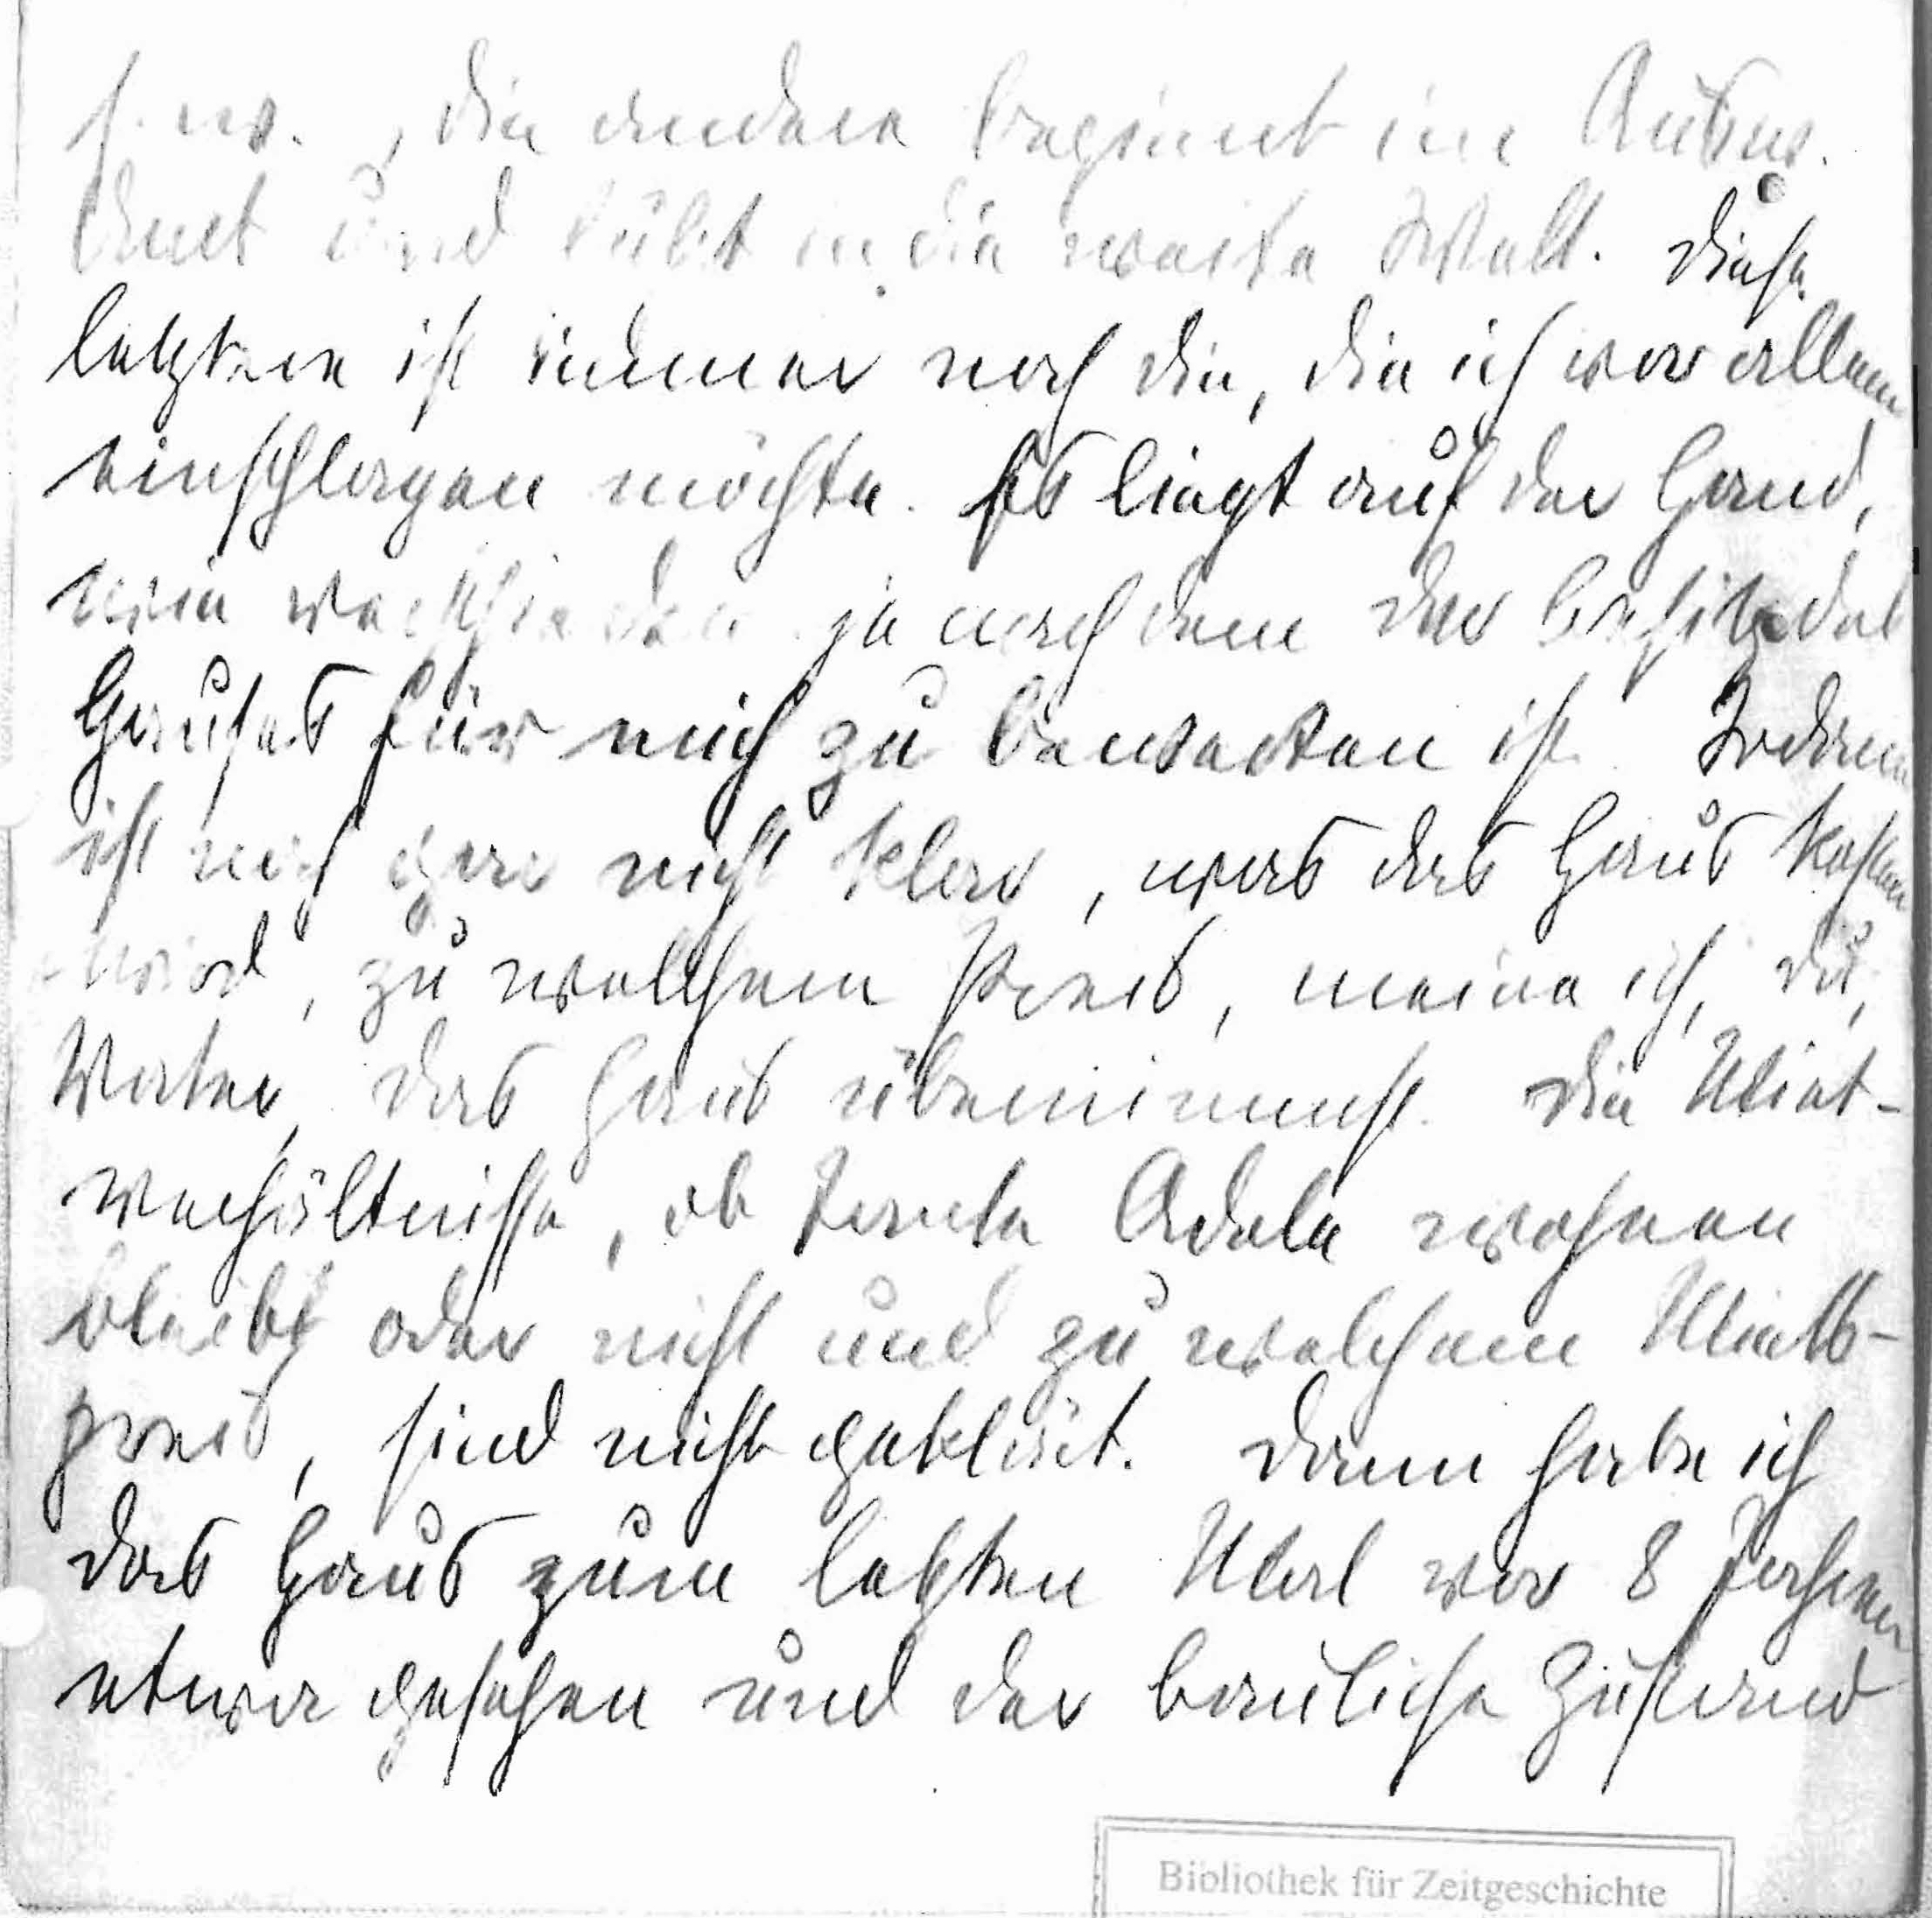 s. w. , die andere beginnt im Ausw.
Amt und führt in die weite Welt. Diese
letztere ist immer noch die, die ich vor allem
einschlagen möchte. Es liegt auf der Hand,
wie verschieden je nach dem der Besitz des
Hauses für mich zu bewerten ist. Zudem
ist mir gar nicht klar, was das Haus kosten
wird, zu welchem Preis, meine ich, du,
Vater, das Haus übernimmst. Die Miet-
verhältnisse, ob Tante Adele wohnen
bleibt oder nicht und zu welchem Miets-
preis, sind nicht geklärt. Dann habe ich
das Haus zum letzten Mal vor 8 Jahren
etwa gesehen und der bauliche Zustand
Bibliothek für Zeitgeschichte